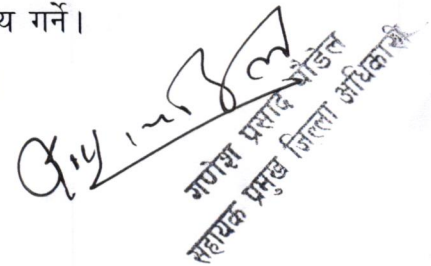 य गर्ने।
गणेश प्रसाद पौडेल
सहायक प्रमुख जिल्ला अधिकारी